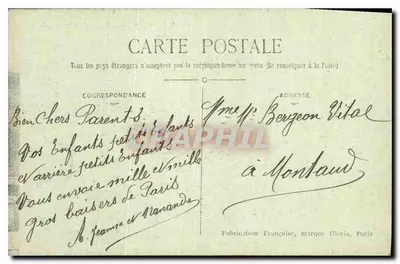 CARTE POSTALE
Tous les pays étrangers n'acceptent pas la correspondance au recto (Se renseigner à la Poste)
CORRESPONDANCE
ADRESSE
Bien Chers Parents
Vos Enfants petits Enfants
et arriere petits Enfants
Vous envoie mille et mille
Gros baisers de Paris
A. Jeanne et Nanande
Mme Mr Bergeon Vital
à Montaud
Fabrication Française, marque Gloria, Paris